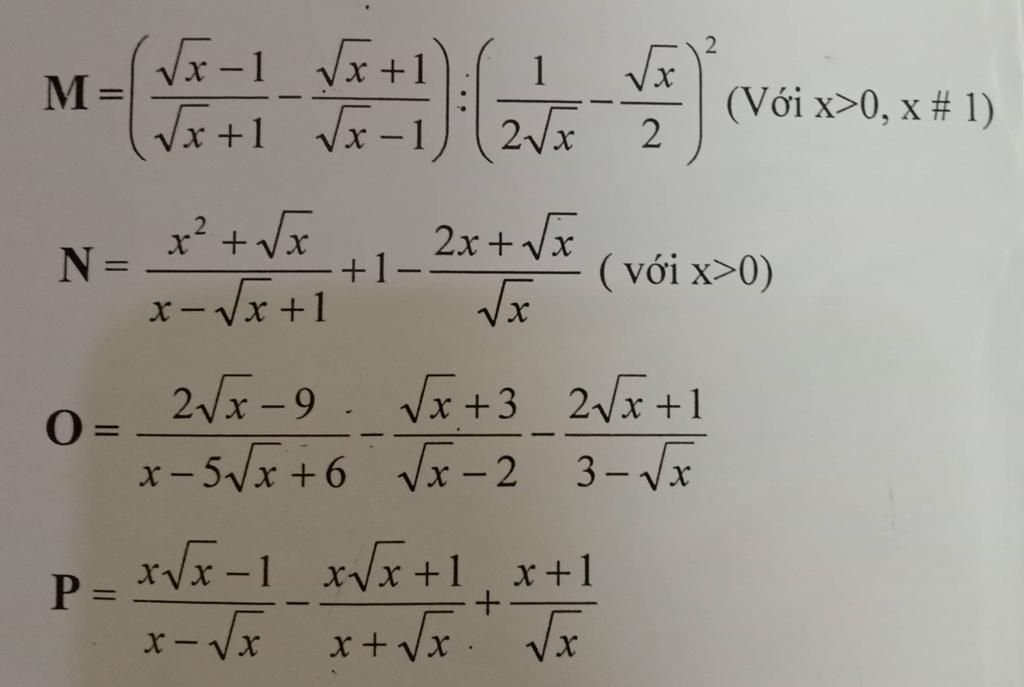 M = ( (√x − 1)/(√x + 1) − (√x + 1)/(√x − 1) ) : ( 1/(2√x) − √x/2 )² (Với x>0, x # 1)
N = (x² + √x)/(x − √x + 1) + 1 − (2x + √x)/√x ( với x>0)
O = (2√x − 9)/(x − 5√x + 6) − (√x + 3)/(√x − 2) − (2√x + 1)/(3 − √x)
P = (x√x − 1)/(x − √x) − (x√x + 1)/(x + √x) + (x + 1)/√x